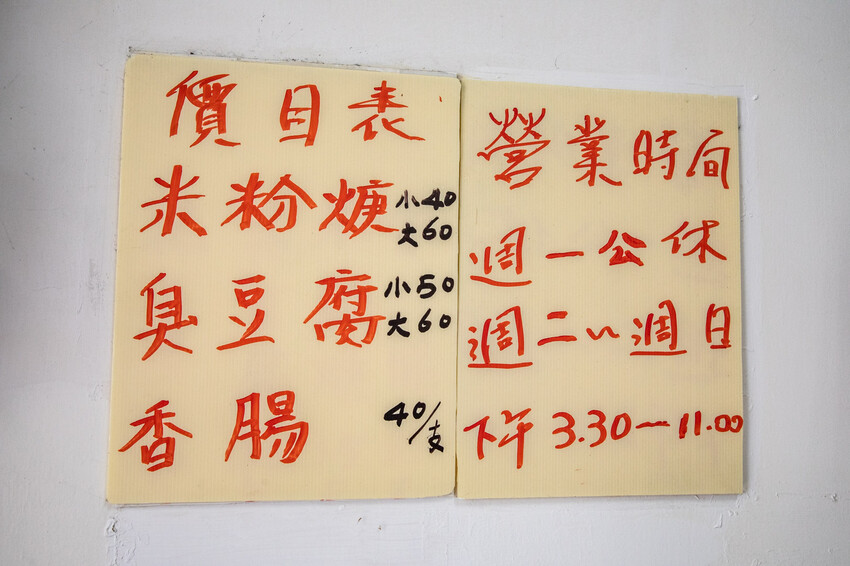 價目表
米粉焿 小40
大60
臭豆腐 小50
大60
香腸 40/支
營業時间
週一公休
週二~週日
下午3.30—11.00